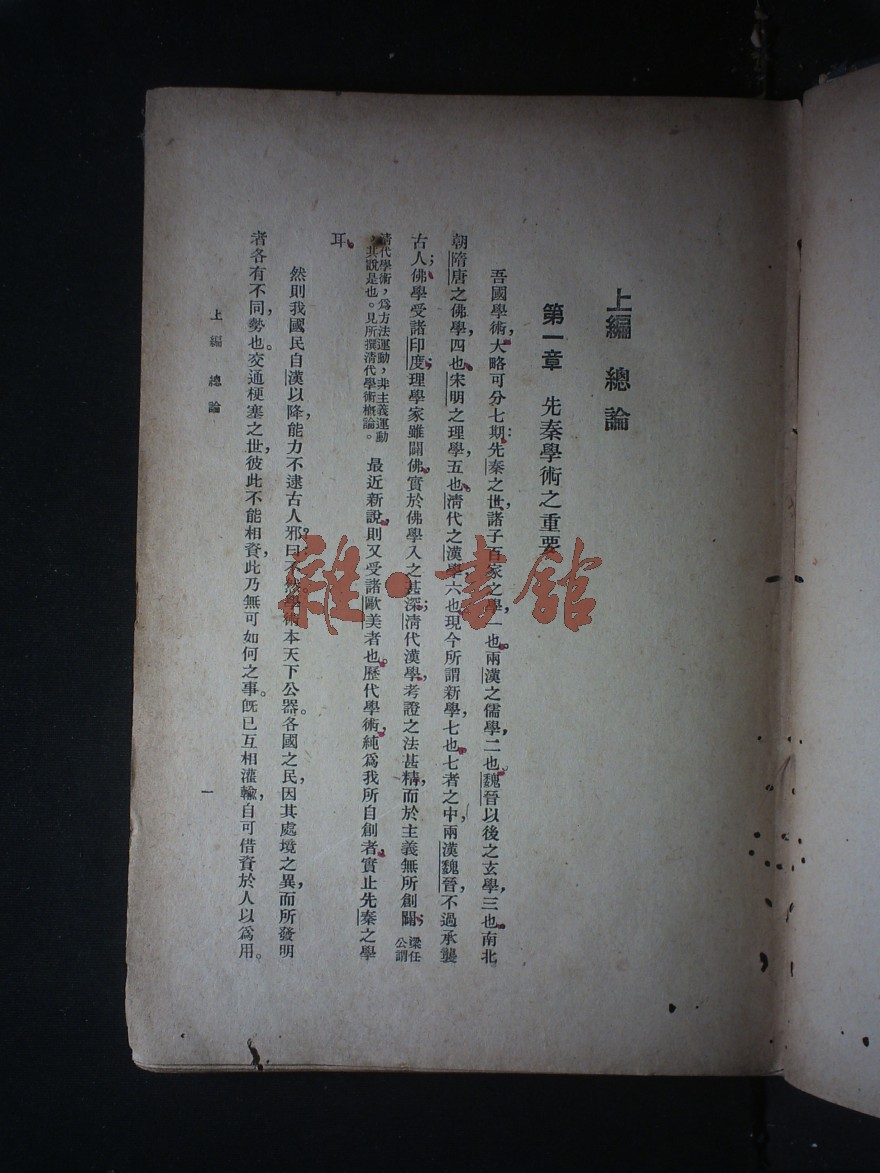 上編　總論
第一章　先秦學術之重要
吾國學術，大略可分七期：先秦之世，諸子百家之學，一也。兩漢之儒學，二也。魏晉以後之玄學，三也。南北
朝隋唐之佛學，四也。宋明之理學，五也。清代之漢學，六也。現今所謂新學，七也。七者之中，兩漢魏晉，不過承襲
古人；佛學受諸印度；理學家雖闢佛，實於佛學入之甚深；清代漢學，考證之法甚精，而於主義無所創闢；梁任公謂
清代學術，爲方法運動，非主義運動，其說是也。見所撰清代學術概論。最近新說，則又受諸歐美者也。歷代學術，純爲我所自創者，實止先秦之學
耳。
然則我國民自漢以降，能力不逮古人邪？曰：不然。學術本天下公器。各國之民，因其處境之異，而所發明
者各有不同，勢也。交通梗塞之世，彼此不能相資，此乃無可如何之事。旣已互相灌輸，自可借資於人以爲用。
上編　總論
一
雜·書館